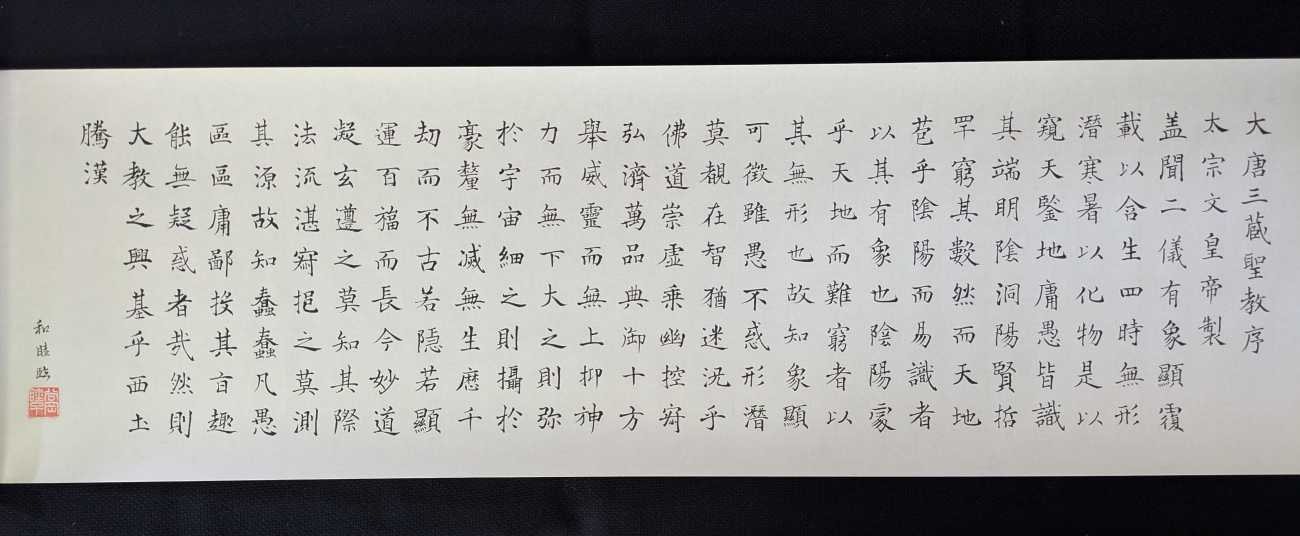 大唐三藏聖教序
太宗文皇帝製
盖聞二儀有象顯覆
載以含生四時無形
潛寒暑以化物是以
窺天鑒地庸愚皆識
其端明陰洞陽賢哲
罕窮其數然而天地
苞乎陰陽而易識者
以其有象也陰陽處
乎天地而難窮者以
其無形也故知象顯
可徵雖愚不惑形潛
莫覩在智猶迷況乎
佛道崇虛乘幽控寂
弘濟萬品典御十方
舉威靈而無上抑神
力而無下大之則弥
於宇宙細之則攝於
豪釐無滅無生歷千
劫而不古若隱若顯
運百福而長今妙道
凝玄遵之莫知其際
法流湛寂挹之莫測
其源故知蠢蠢凡愚
區區庸鄙投其旨趣
能無疑惑者哉然則
大教之興基乎西土
騰漢
和睦臨